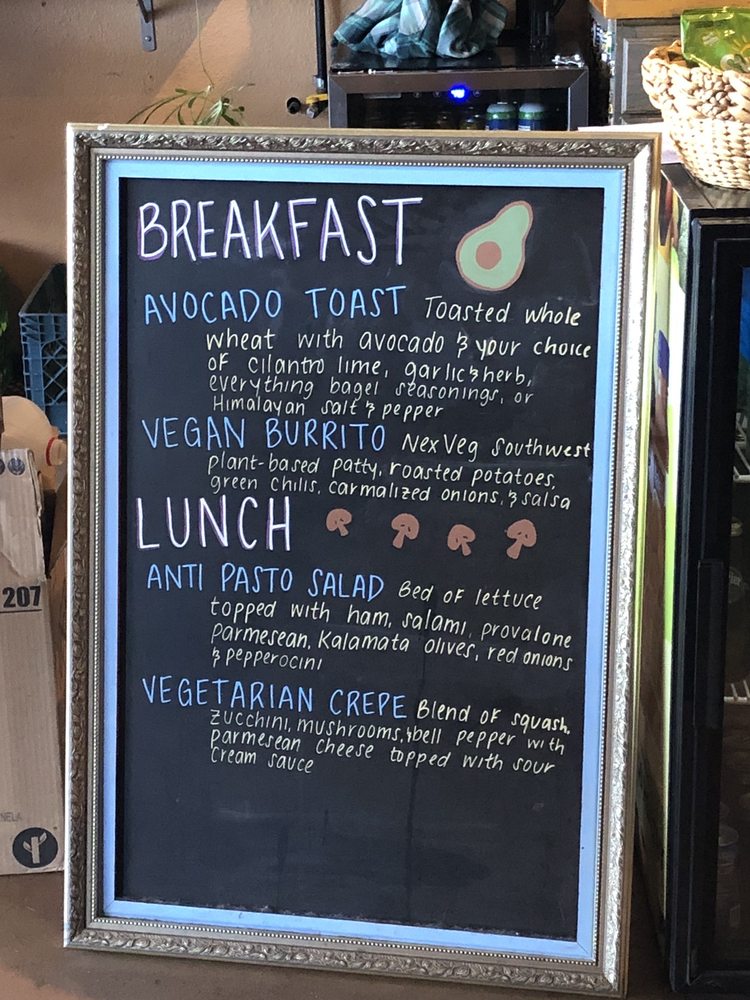 BREAKFAST
AVOCADO TOAST Toasted whole
wheat with avocado & your choice
of cilantro lime, garlic & herb,
everything bagel seasonings, or
Himalayan salt & pepper
VEGAN BURRITO NexVeg Southwest
plant-based patty, roasted potatoes,
green chilis, carmalized onions, & salsa
LUNCH
ANTI PASTO SALAD Bed of lettuce
topped with ham, salami, provalone
parmesean, Kalamata olives, red onions
& pepperocini
VEGETARIAN CREPE Blend of squash,
zucchini, mushrooms, & bell pepper with
parmesean cheese topped with sour
cream sauce
207
NELA